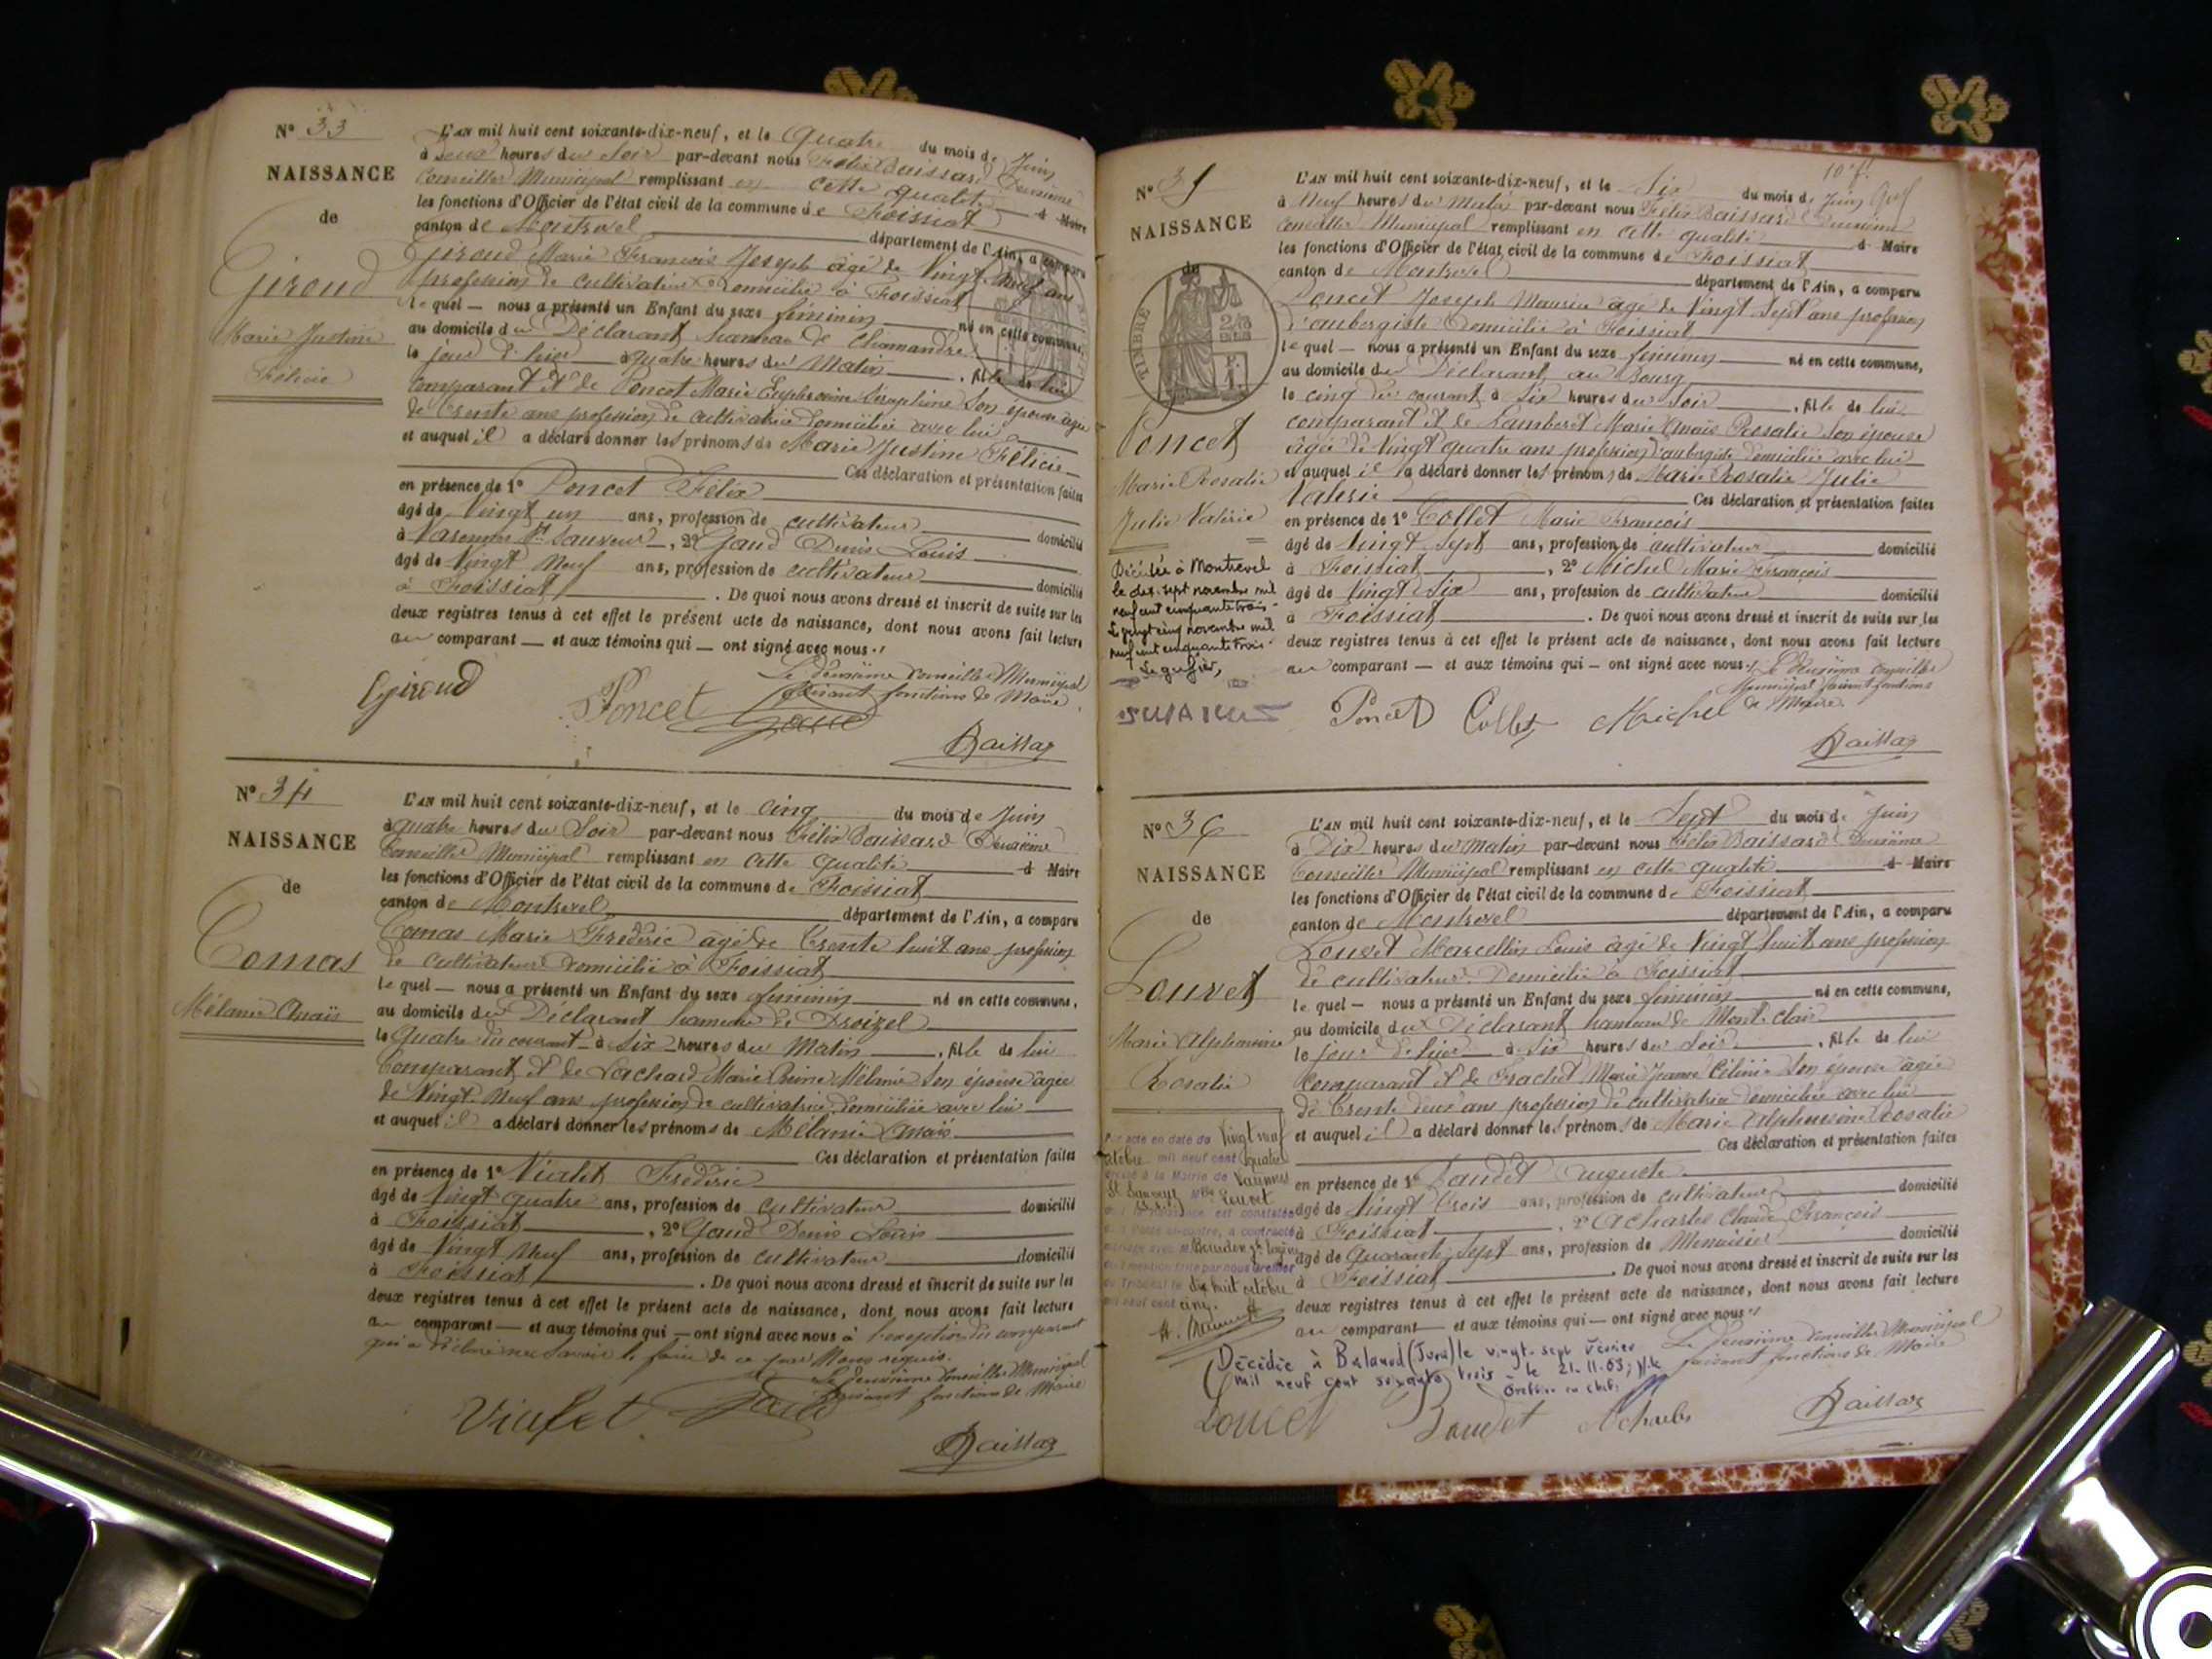 N° 33
NAISSANCE
de
Giroud
Marie Justine
Félicie
L'AN mil huit cent soixante-dix-neuf, et le Quatre du mois de Juin
à Deux heures du Soir par-devant nous Félix Baissard Deuxième
Conseiller Municipal remplissant en cette qualité d Maire
les fonctions d'Officier de l'état civil de la commune de Foissiat
canton de Montrevel département de l'Ain, a comparu
Giroud Marie François Joseph âgé de Vingt Neuf ans
profession de cultivateur Domicilié à Foissiat
lequel — nous a présenté un Enfant du sexe féminin né en cette commune,
au domicile du Déclarant hameau de Chamandre
le jour d'hier à quatre heures du Matin , fille de lui
comparant et de Poncet Marie Euphrosine Séraphine Son épouse âgée
de Trente ans profession de cultivatrice domiciliée avec lui
et auquel il a déclaré donner les prénoms de Marie Justine Félicie
Ces déclaration et présentation faites
en présence de 1° Poncet Félix
âgé de Vingt un ans, profession de cultivateur domicilié
à Varennes St Sauveur, 2° Gaud Denis Louis
âgé de Vingt Neuf ans, profession de cultivateur domicilié
à Foissiat . De quoi nous avons dressé et inscrit de suite sur les
deux registres tenus à cet effet le présent acte de naissance, dont nous avons fait lecture
au comparant — et aux témoins qui — ont signé avec nous.
Le deuxième Conseiller Municipal
faisant fonctions de Maire
Giroud Poncet Gaud
Baissard
N° 34
NAISSANCE
de
Comas
Mélanie Anaïs
L'AN mil huit cent soixante-dix-neuf, et le cinq du mois de Juin
à quatre heures du Soir par-devant nous Félix Baissard Deuxième
Conseiller Municipal remplissant en cette qualité d Maire
les fonctions d'Officier de l'état civil de la commune de Foissiat
canton de Montrevel département de l'Ain, a comparu
Comas Marie Frédéric âgé de Trente huit ans profession
de cultivateur domicilié à Foissiat
lequel — nous a présenté un Enfant du sexe féminin né en cette commune,
au domicile du Déclarant hameau de Droizel
le Quatre du courant à Six heures du Matin , fille de lui
Comparant et de Lachard Marie Reine Mélanie Son épouse âgée
de Vingt Neuf ans profession de cultivatrice domiciliée avec lui
et auquel il a déclaré donner les prénoms de Mélanie Anaïs
Ces déclaration et présentation faites
en présence de 1° Vialet Frédéric
âgé de Vingt quatre ans, profession de cultivateur domicilié
à Foissiat , 2° Gaud Denis Louis
âgé de Vingt Neuf ans, profession de cultivateur domicilié
à Foissiat . De quoi nous avons dressé et inscrit de suite sur les
deux registres tenus à cet effet le présent acte de naissance, dont nous avons fait lecture
au comparant — et aux témoins qui — ont signé avec nous à l'exception du comparant
qui a déclaré ne savoir le faire de ce par Nous requis.
Le deuxième Conseiller Municipal
faisant fonctions de Maire
Vialet Gaud
Baissard
N° 35
NAISSANCE
de
TIMBRE
Poncet
Marie Rosalie
Julie Valérie
Décédée à Montrevel
le dix-sept novembre mil
neuf cent cinquante trois
Le vingt cinq novembre mil
neuf cent cinquante trois
Le greffier,
L'AN mil huit cent soixante-dix-neuf, et le Six du mois de Juin
à Neuf heures du Matin par-devant nous Félix Baissard Deuxième
Conseiller Municipal remplissant en cette qualité d Maire
les fonctions d'Officier de l'état civil de la commune de Foissiat
canton de Montrevel département de l'Ain, a comparu
Poncet Joseph Maurice âgé de Vingt Sept ans profession
d'aubergiste Domicilié à Foissiat
lequel — nous a présenté un Enfant du sexe féminin né en cette commune,
au domicile du Déclarant, au Bourg
le cinq du courant à Six heures du Soir , fille de lui
comparant et de Lambert Marie Anaïs Rosalie Son épouse
âgée de Vingt quatre ans profession d'aubergiste domiciliée avec lui
et auquel il a déclaré donner les prénoms de Marie Rosalie Julie
Valérie Ces déclaration et présentation faites
en présence de 1° Collet Marie François
âgé de Vingt Sept ans, profession de cultivateur domicilié
à Foissiat , 2° Michel Marie François
âgé de Vingt Six ans, profession de cultivateur domicilié
à Foissiat . De quoi nous avons dressé et inscrit de suite sur les
deux registres tenus à cet effet le présent acte de naissance, dont nous avons fait lecture
au comparant — et aux témoins qui — ont signé avec nous. Le Deuxième Conseiller
Municipal faisant fonctions
de Maire
Poncet Collet Michel
Baissard
N° 36
NAISSANCE
de
Louvet
Marie Alphonsine
Rosalie
L'AN mil huit cent soixante-dix-neuf, et le Sept du mois de Juin
à Dix heures du Matin par-devant nous Félix Baissard Deuxième
Conseiller Municipal remplissant en cette qualité d Maire
les fonctions d'Officier de l'état civil de la commune de Foissiat
canton de Montrevel département de l'Ain, a comparu
Louvet Marcellin Louis âgé de Vingt huit ans profession
de cultivateur Domicilié à Foissiat
lequel — nous a présenté un Enfant du sexe féminin né en cette commune,
au domicile du Déclarant hameau de Mont-clair
le jour d'hier à Six heures du Soir , fille de lui
Comparant et de Frachet Marie Jeanne Célinie Son épouse âgée
de Trente deux ans profession de cultivatrice domiciliée avec lui
et auquel il a déclaré donner les prénoms de Marie Alphonsine Rosalie
Ces déclaration et présentation faites
en présence de 1° Baudet Auguste
âgé de Vingt Trois ans, profession de cultivateur domicilié
à Foissiat , 2° Acharles Claude François
âgé de Quarante Sept ans, profession de Menuisier domicilié
à Foissiat . De quoi nous avons dressé et inscrit de suite sur les
deux registres tenus à cet effet le présent acte de naissance, dont nous avons fait lecture
au comparant — et aux témoins qui — ont signé avec nous
Le deuxième Conseiller Municipal
faisant fonctions de Maire
Par acte en date du Vingt neuf
octobre mil neuf cent quatre
dressé à la Mairie de Varennes
St Sauveur Louvet
mariage avec M
du Tribunal le dix huit octobre
mil neuf cent cinq.
Décédée à Balanod (Jura) le vingt-sept février
mil neuf cent soixante trois le 21-11-63;
Louvet Baudet Acharles
Baissard